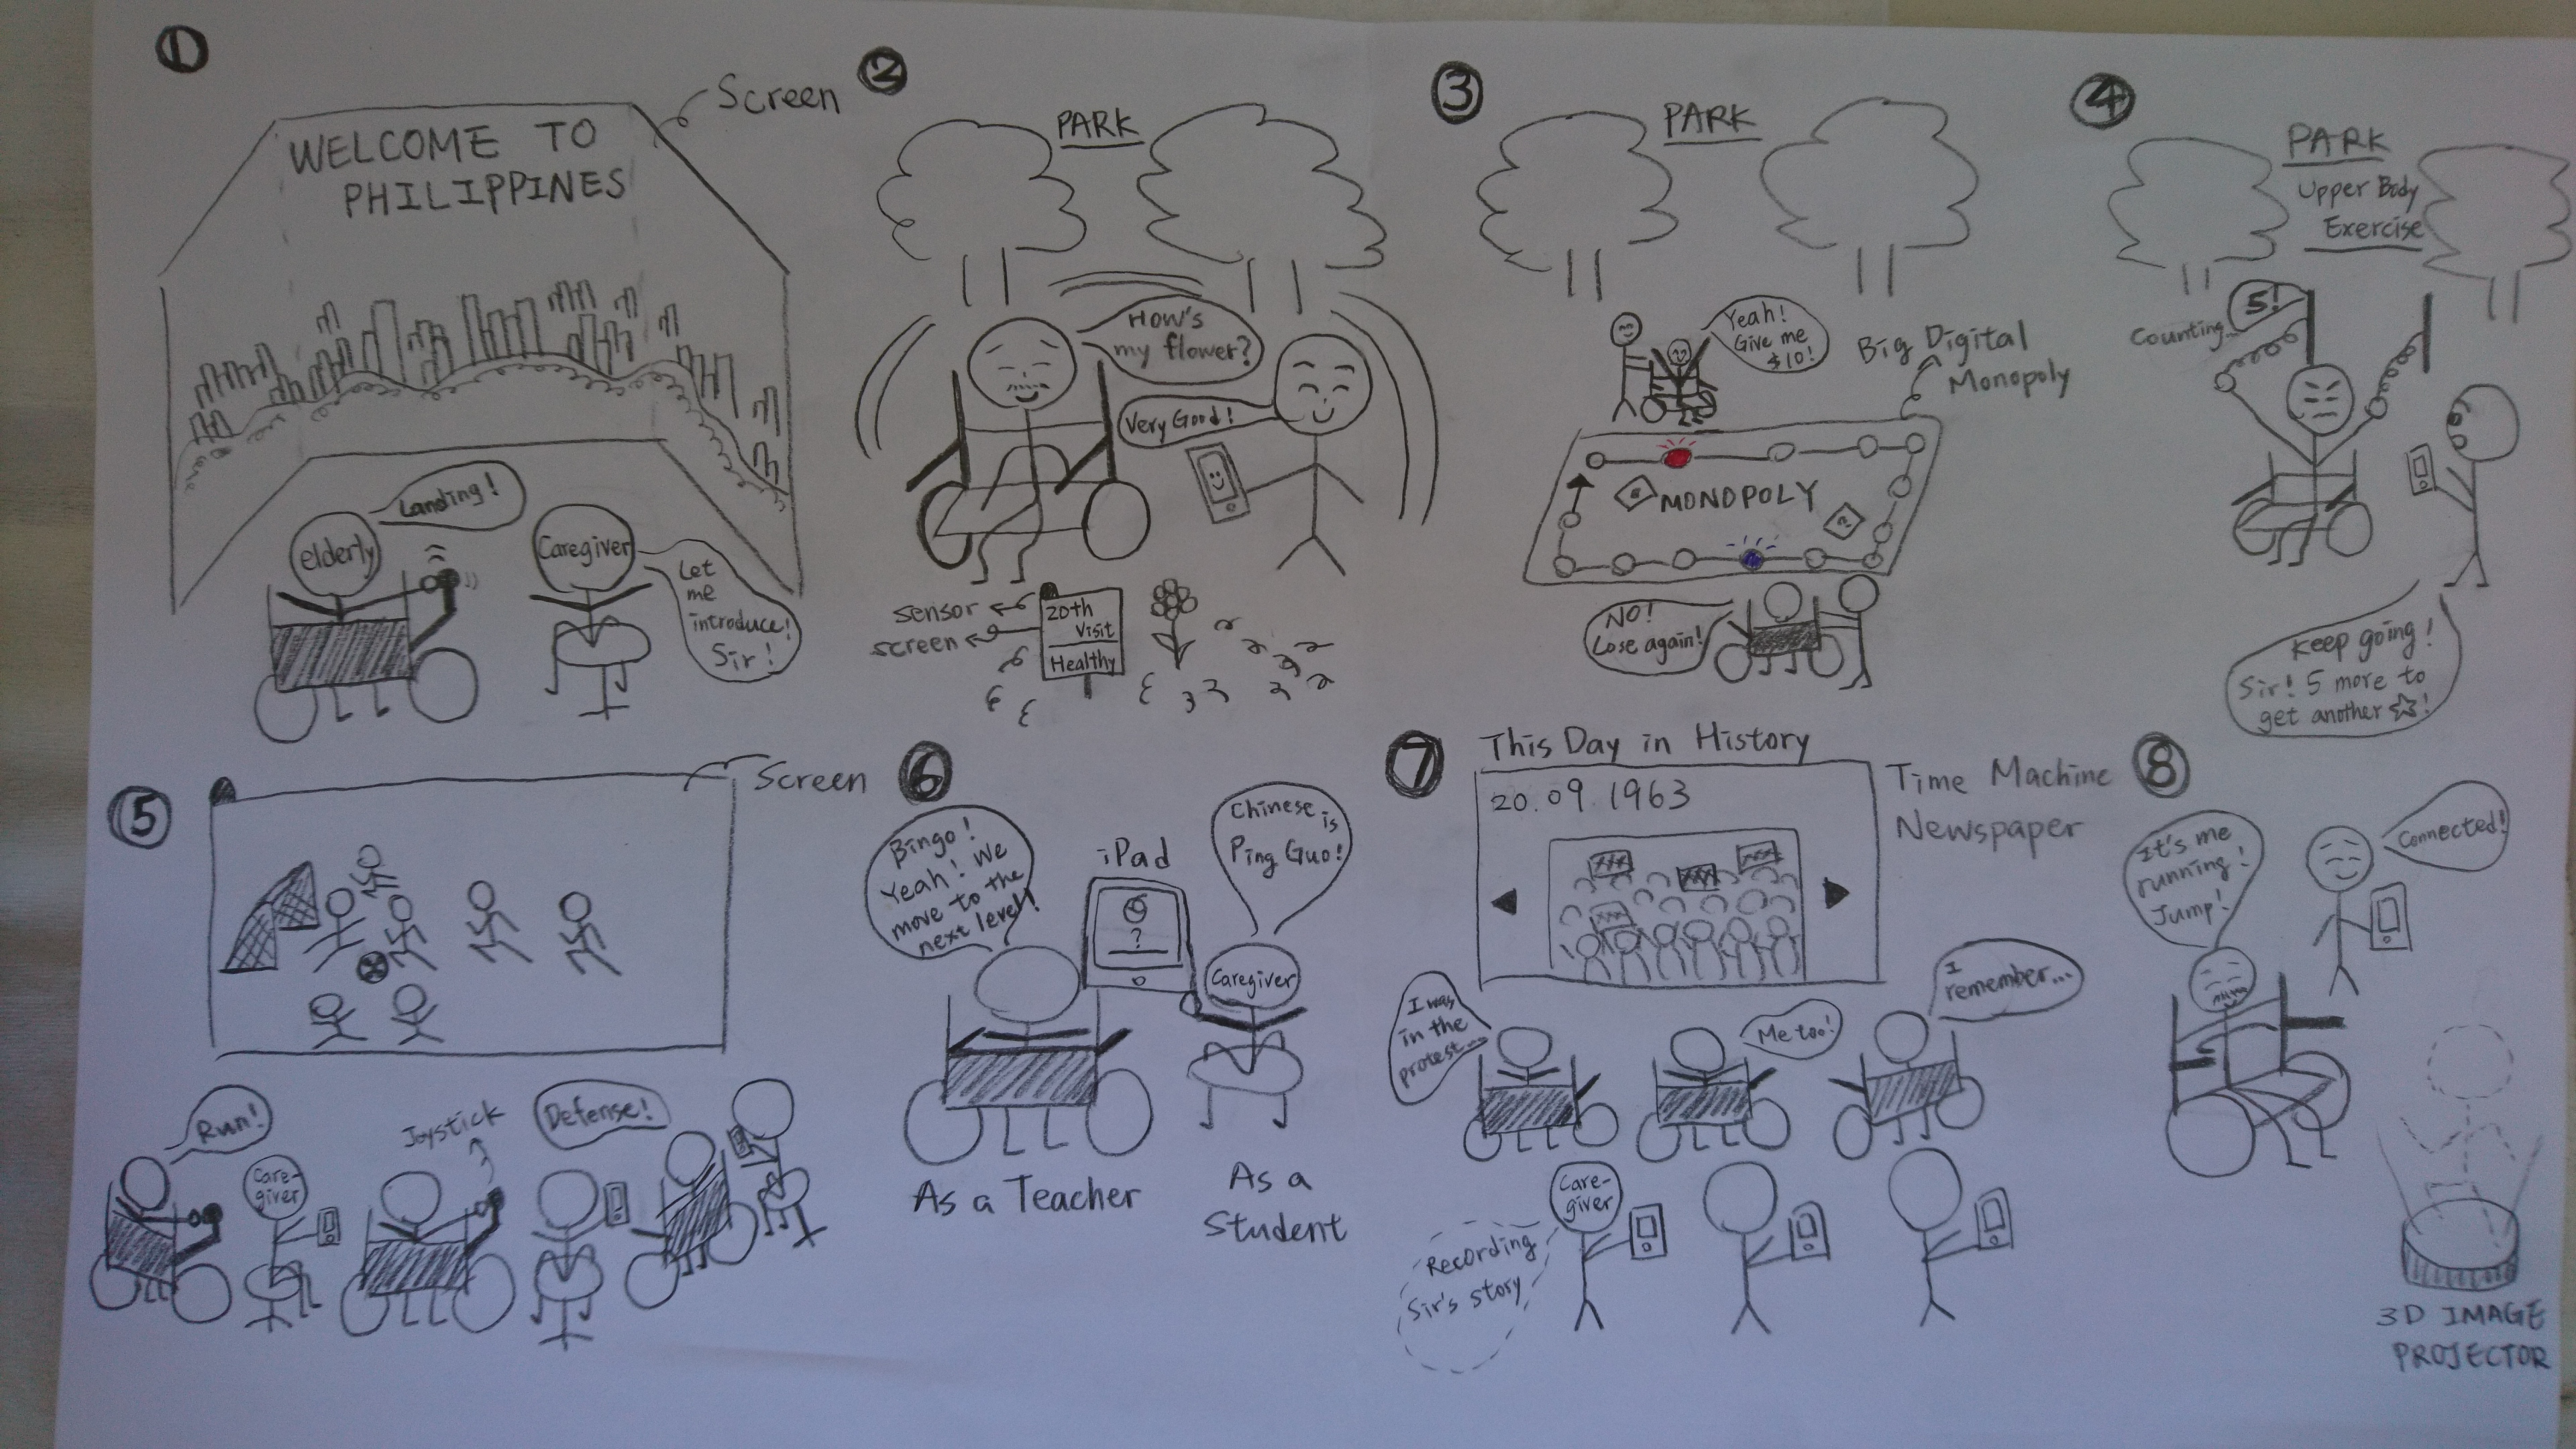 1
Screen
WELCOME TO
PHILIPPINES
Landing!
elderly
Caregiver
Let
me
introduce!
Sir!
2
PARK
How's
my flower?
Very Good!
sensor
screen
20th
Visit
Healthy
3
PARK
Yeah!
Give me
$10!
Big Digital
Monopoly
MONOPOLY
?
NO!
Lose again!
4
PARK
Upper Body
Exercise
5!
Counting...
Keep going!
Sir! 5 more to
get another ☆!
5
Screen
Run!
Care-
giver
Joystick
Defense!
6
Bingo!
Yeah! We
move to the
next level!
iPad
?
Chinese is
Ping Guo!
Caregiver
As a Teacher
As a
Student
7
This Day in History
20.09.1963
Time Machine
Newspaper
XXX
XXX
XXX
XXX
I was
in the
protest...
Me too!
I
remember...
Care-
giver
Recording
Sir's story
8
It's me
running!
Jump!
Connected!
3D IMAGE
PROJECTOR